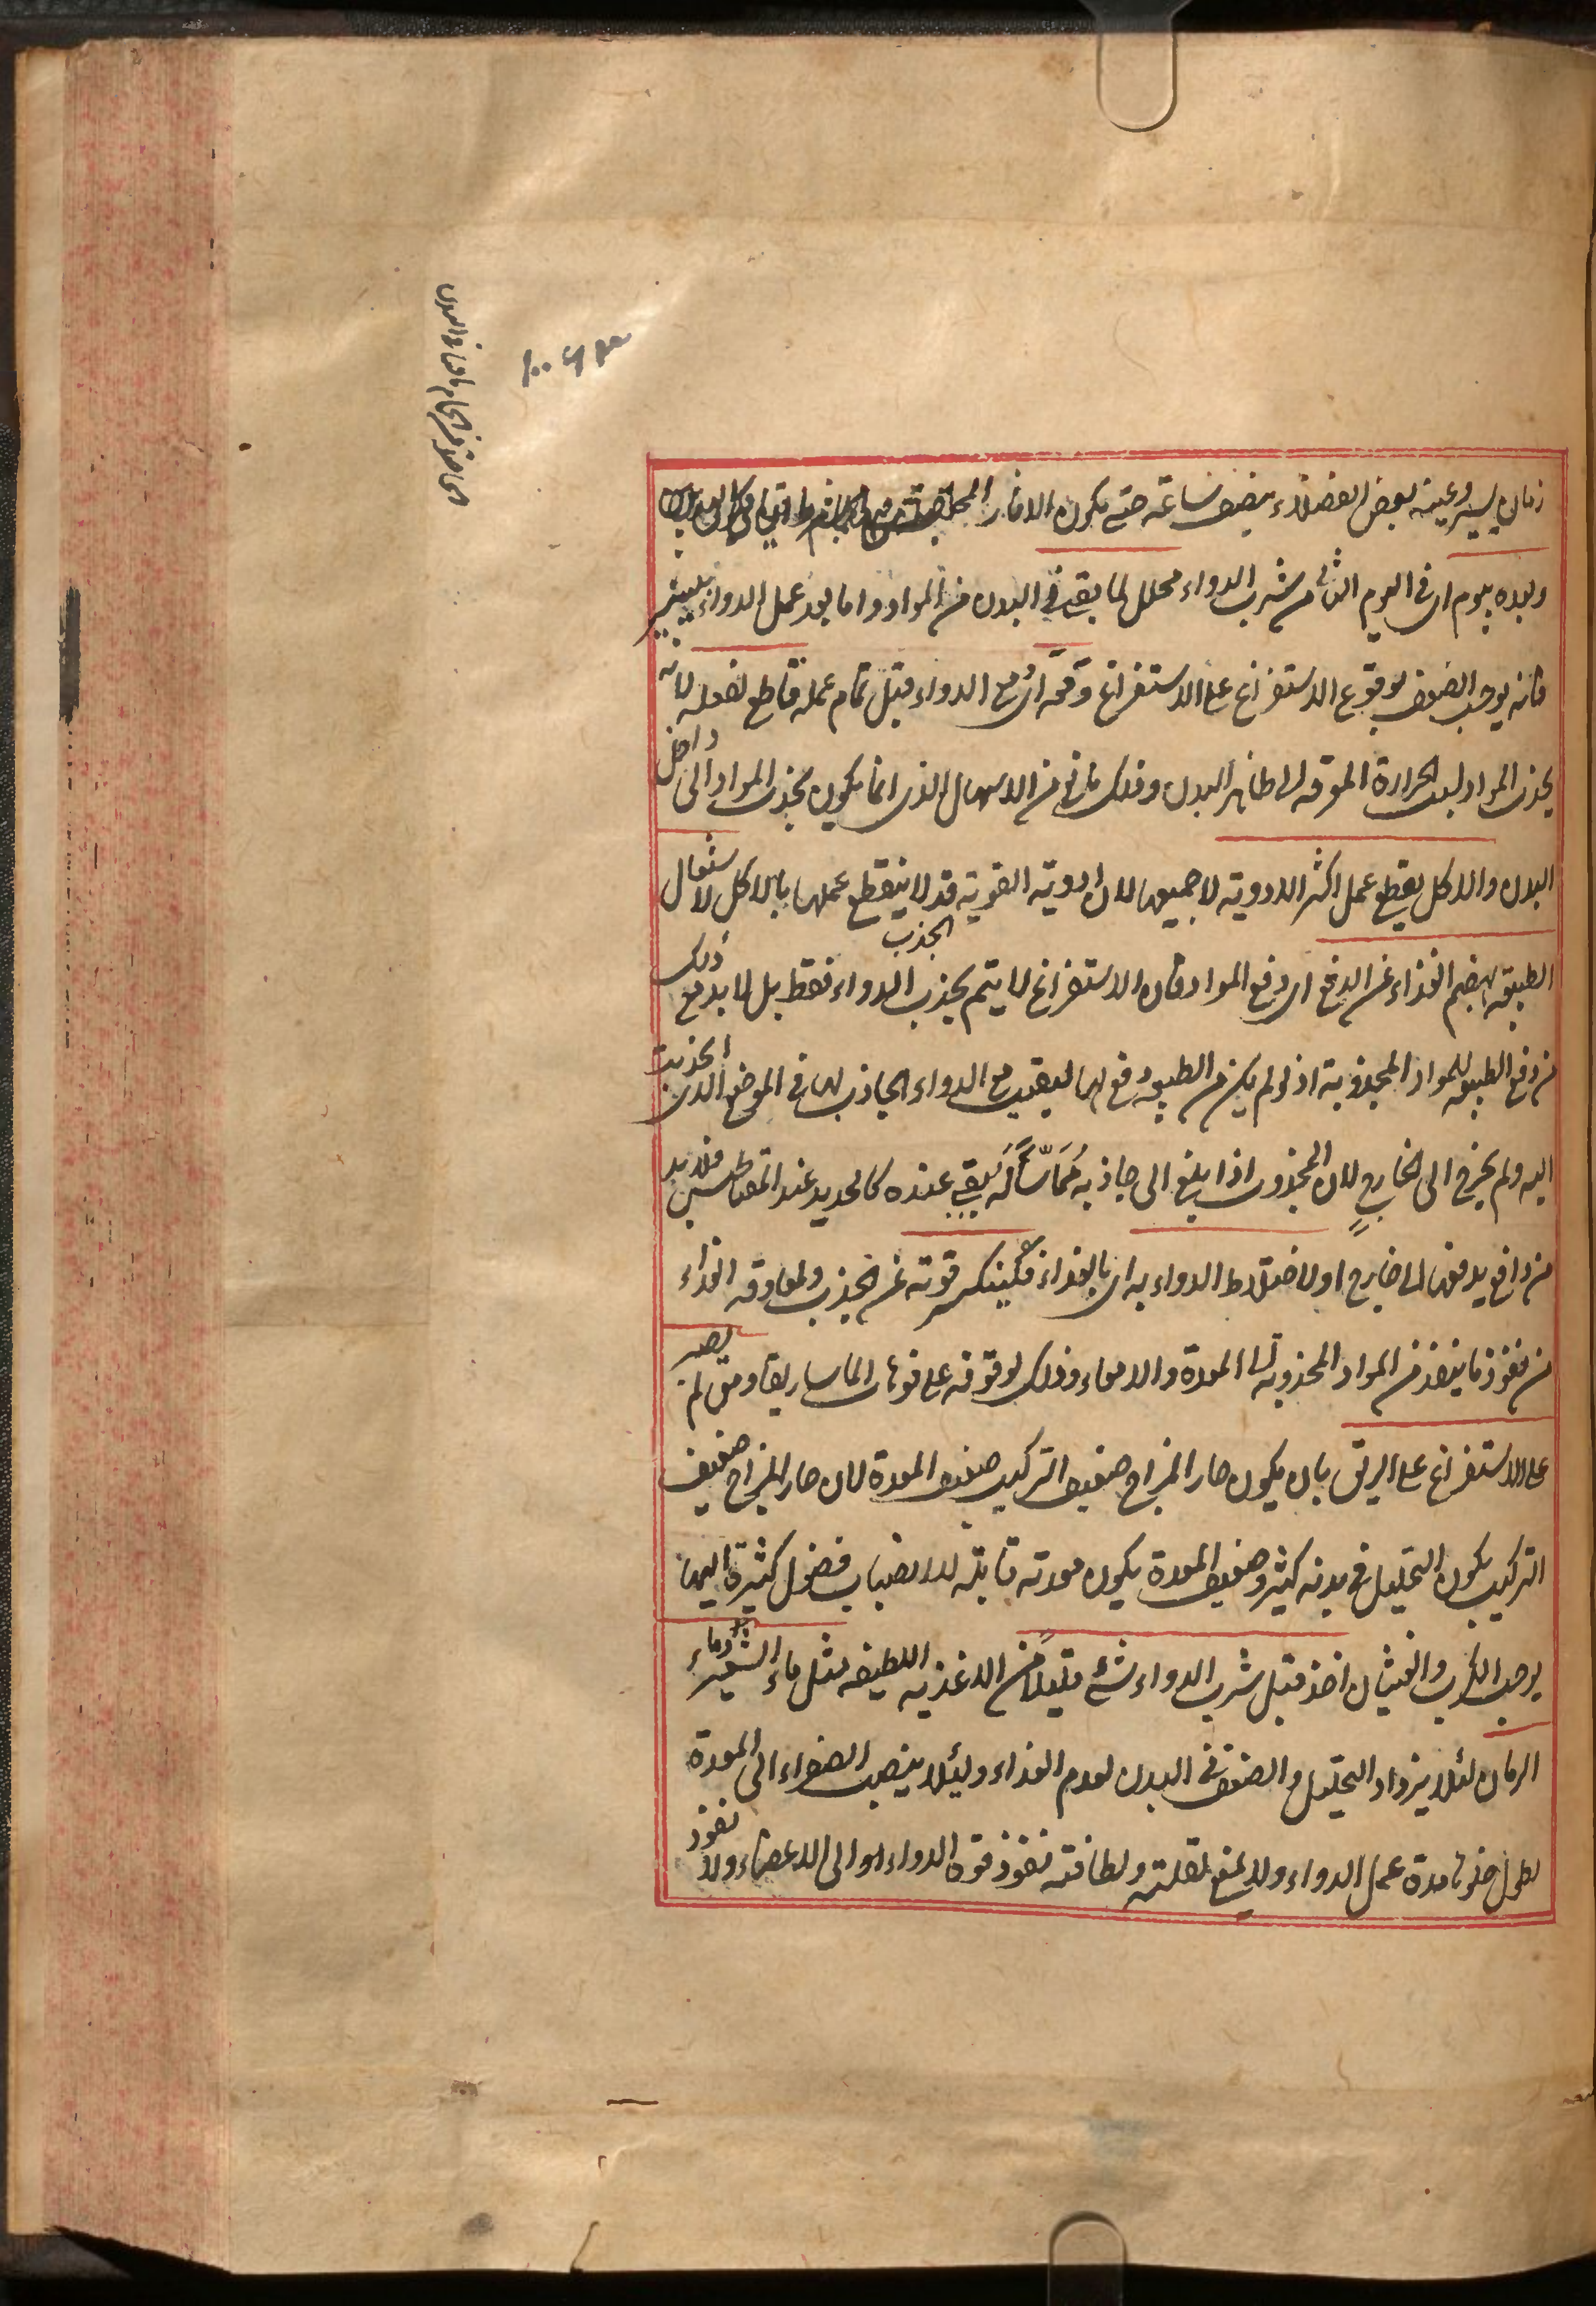 زمان يسير وعينه بعض الفضلاء بنصف ساعة حتى يكون الاثار
وبعده بيوم اى فى اليوم الثانى من شرب الدواء محلل لما بقى فى البدن من المواد واما بعد عمل الدواء بيسير
فانه يوجب الضعف لوقوع الاستفراغ على الاستفراغ وقعه اى مع الدواء قبل تمام عمله قاطع لفعله لانه
يجذب المواد لسبب الحرارة الموقه الى ظاهر البدن وذلك مانع من الاسهال الذى انما يكون بجذب المواد الى داخل
البدن والاكل يقطع عمل اكثر الادوية لا جميعها لان ادوية القوية قد لا ينقطع عملها بالاكل لاشتغال
الطبيعة بهضم الغذاء عن الدفع اى دفع المواد فان الاستفراغ لا يتم بجذب الجذب الدواء فقط بل لا بد مع ذلك
من دفع الطبيعة للمواد المجذوبة اذ لو لم يكن من الطبيعة دفع لها لبقيت مع الدواء الجاذب لها فى الموضع الذى انجذبت
اليه ولم يخرج الى الخارج لان المجذوب اذا بلغ الى جاذبه مماسا له بقى عنده كالحديد عند المقناطيس فلا بد
من دافع يدفعها الى خارج اولا ختلاط الدواء به اى بالغذاء فينكسر قوته عن الجذب ولمعاوقة الغذاء
من نفوذ ما ينفذ من المواد المجذوبة الى المعدة والامعاء وذلك لوقوفه على فوهات الماساريقا ومتى لم يصبر
على الاستفراغ على الريق بان يكون حار المزاج ضعيف التركيب ضعيف المعدة لان حار المزاج ضعيف
التركيب يكون التحليل فى بدنه كثير وضعيف المعدة يكون معدته قابلة لانصباب فضول كثيرة اليها
يوجب الكرب والغثيان اخذ قبل شرب الدواء شئ قليلا من الاغذية اللطيفة مثل ماء الشعير وماء
الرمان لئلا يزداد التحليل والضعف فى البدن لعدم الغذاء ولئلا ينصب الصفراء الى المعدة
لطول خلوها مدة عمل الدواء ولا يمنع لقلته ولطافته نفوذ قوة الدواء الى الاعضاء ولا نفوذ